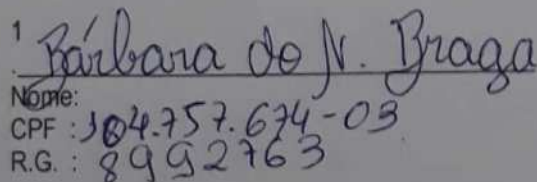 1
Bárbara do N. Braga
Nome:
CPF : 104.757.674-03
R.G. : 8992763